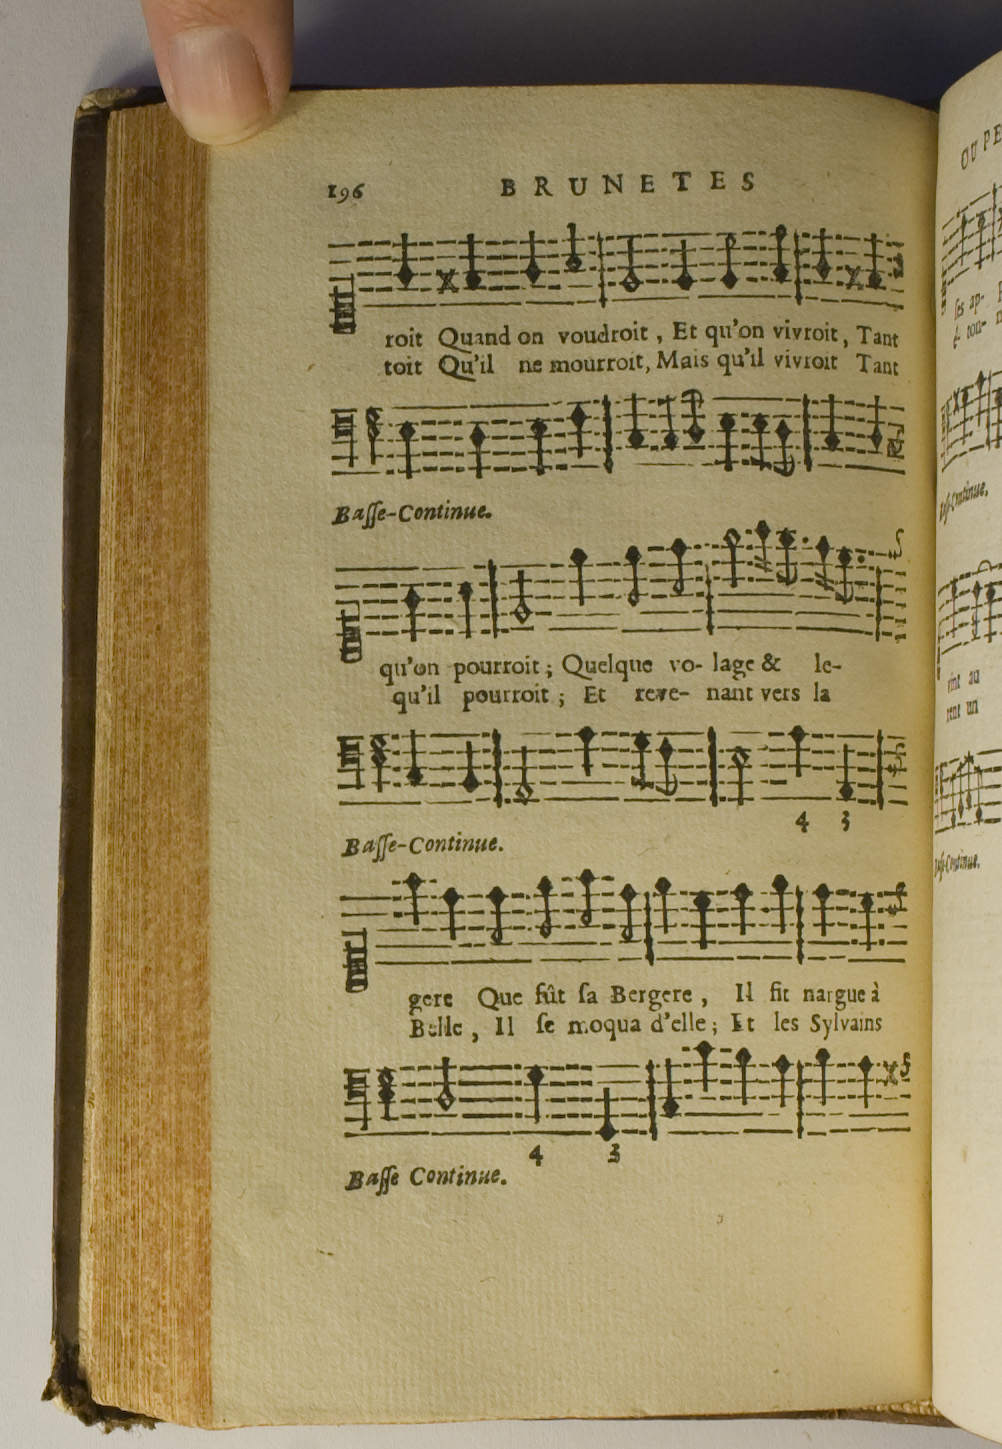 196 BRUNETES
roit Quand on voudroit, Et qu'on vivroit, Tant
toit Qu'il ne mourroit, Mais qu'il vivroit Tant
Baſſe-Continue.
qu'on pourroit; Quelque vo- lage & le-
qu'il pourroit; Et reve- nant vers la
4 3
Baſſe-Continue.
gere Que fût ſa Bergere, Il fit nargue à
Belle, Il ſe moqua d'elle; Et les Sylvains
4 3
Baſſe Continue.
OU PE
ſes ap-
& ton-
Baſſ-Continue.
vint au
rent un
Baſſ-Continue.